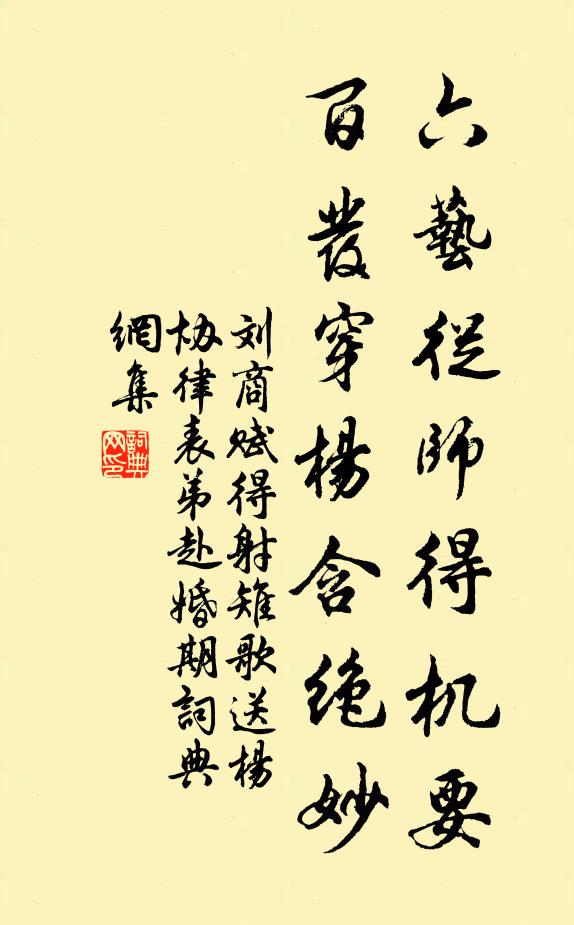 六藝從師得机要
百發穿楊含絶妙
刘商赋得射雉歌送楊
协律表弟赴婚期詞典
網集
詞典网印